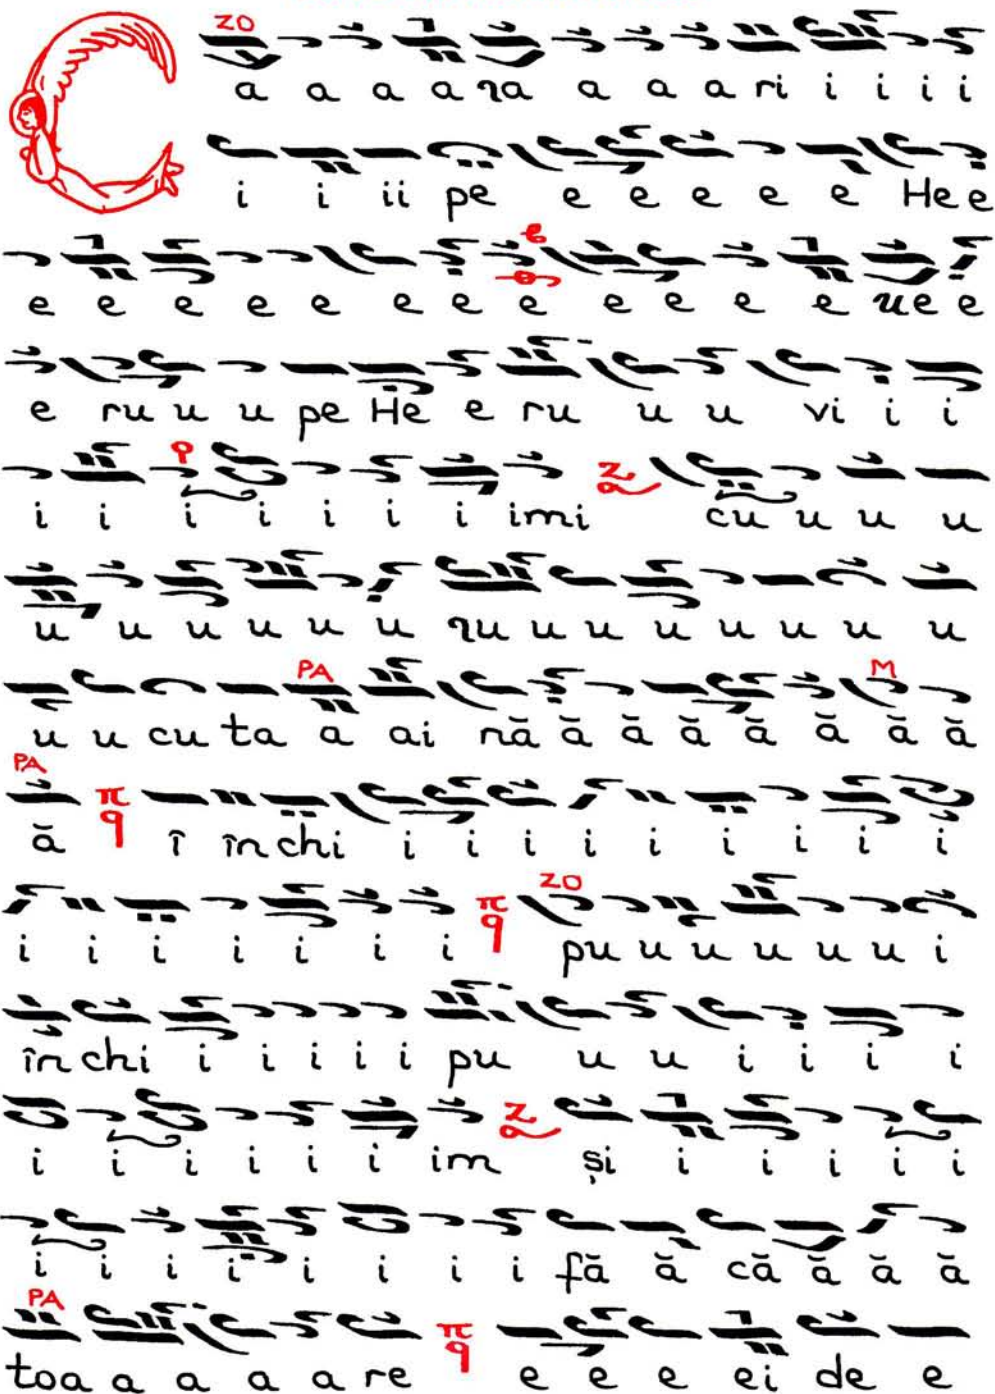 ZO
C a a a a ra a a a ri i i i i
i i ii pe e e e e e He e
e e e e e e e e e e e e ue e
e ru u u pe He e ru u u vi i i
i i i i i i i imi cu u u u
u u u u u u ru u u u u u u u
PA M
u u cu ta a ai nă ă ă ă ă ă ă ă
PA
ă π q î închi i i i i i i i i i
ZO
i i i i i i i π q pu u u u u u i
închi i i i i i pu u u i i i i
i i i i i i im și i i i i i
i i i i i i i i fă ă că ă ă ă
PA
toa a a a a re π q e e e ei de e